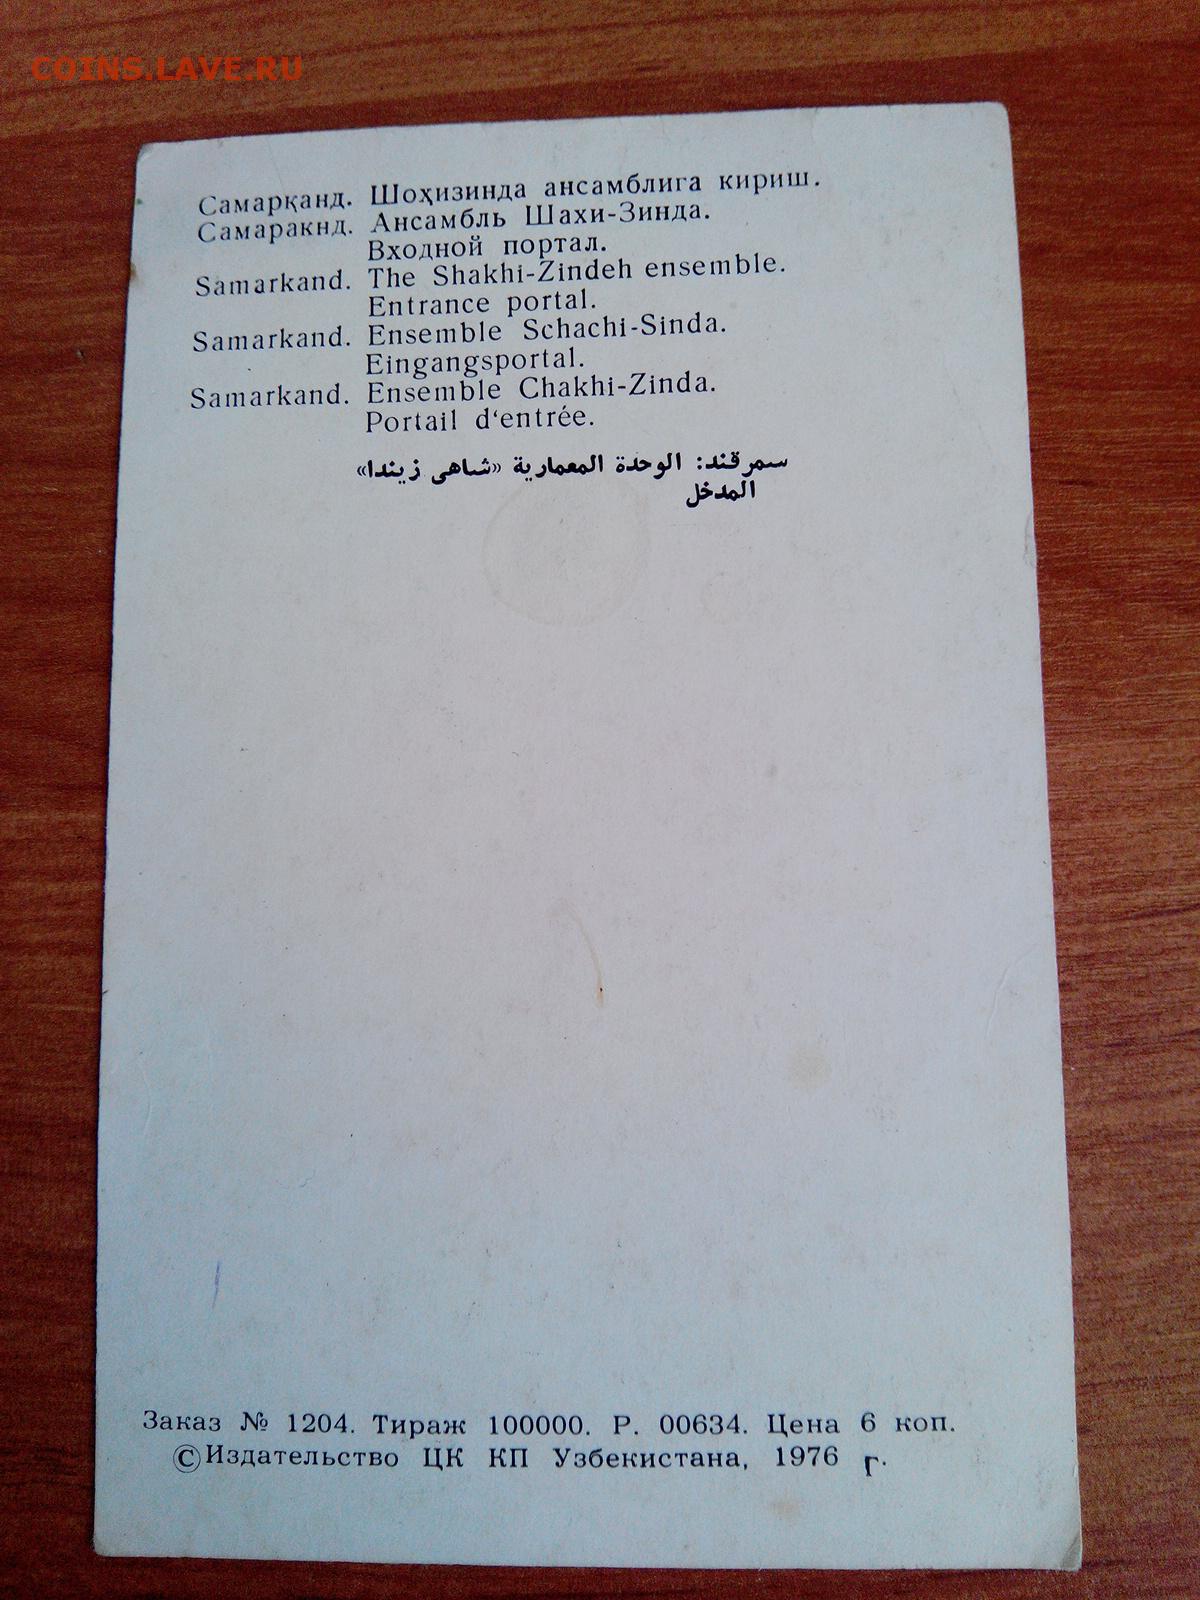 COINS.LAVE.RU
Самарқанд. Шоҳизинда ансамблига кириш.
Самаракнд. Ансамбль Шахи-Зинда.
Входной портал.
Samarkand. The Shakhi-Zindeh ensemble.
Entrance portal.
Samarkand. Ensemble Schachi-Sinda.
Eingangsportal.
Samarkand. Ensemble Chakhi-Zinda.
Portail d‘entrée.
سمرقند: الوحدة المعمارية «شاهى زيندا»
المدخل
Заказ № 1204. Тираж 100000. Р. 00634. Цена 6 коп.
©Издательство ЦК КП Узбекистана, 1976 г.